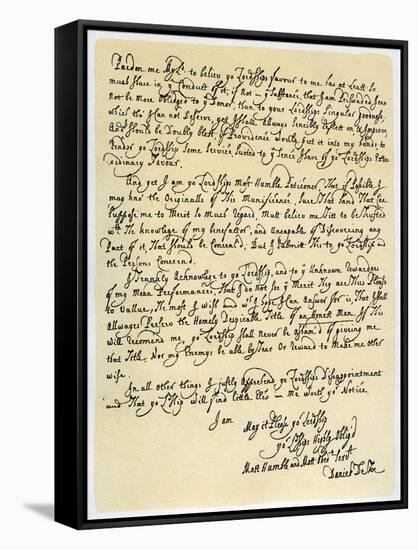 Pardon me My Ld. to believe yo Lordships favour to me has at Least So
much share in ye Conduct of it, if not in ye Substance, that I am perswaded I can
not be more obliged to ye Donor, than to your Lordships Singular goodness,
which tho I can not Deserve, yet I shall allways Sensibly Reflect on & Improve
And Should be Doubly blest if Providence would put it into my hands, to
Render yo Lordship Some Service, suited to ye Sence I have of yo Lordships Extra
ordinary Favour.
And yet I am yo Lordships Most Humble Peticoner, That if Possible I
may kno' the Originalls of This Munificence, Sure That hand That Can
Suppose me to Merit So much Regard, Must believe me Fitt to be Trusted
wth. The knowlege of my benefactor, and uncapable of Discovering any
Part of it, That Should be Conceal'd; But I Submitt This to yo Lordship and
the Persons Concernd.
I Frankly Acknowlege to yo Lordship, and to ye Unknown Rewarders
of my Mean Performances, That I do not See ye Meritt They are Thus Pleas'd
to Vallue, The most I wish and wch I hope I can Answer for is, That I shall
Allwayes Preserve the Homely Despicable Title of an Honest Man. If This
will recomend me, yo Lordship Shall never be Asham'd of giveing me
that Title, Nor my Enemys be able by Fear Or Reward to Make me other
wise.
In all other things I justly Apprehend yo Lordships Disappointment
and That yo Ldship will find little Else in me worth yo Notice.
I am
May it Please yo Lordship
yo Ldships Highly Oblig'd
Most Humble and Most Obedt. Servt.
Daniel De Foe